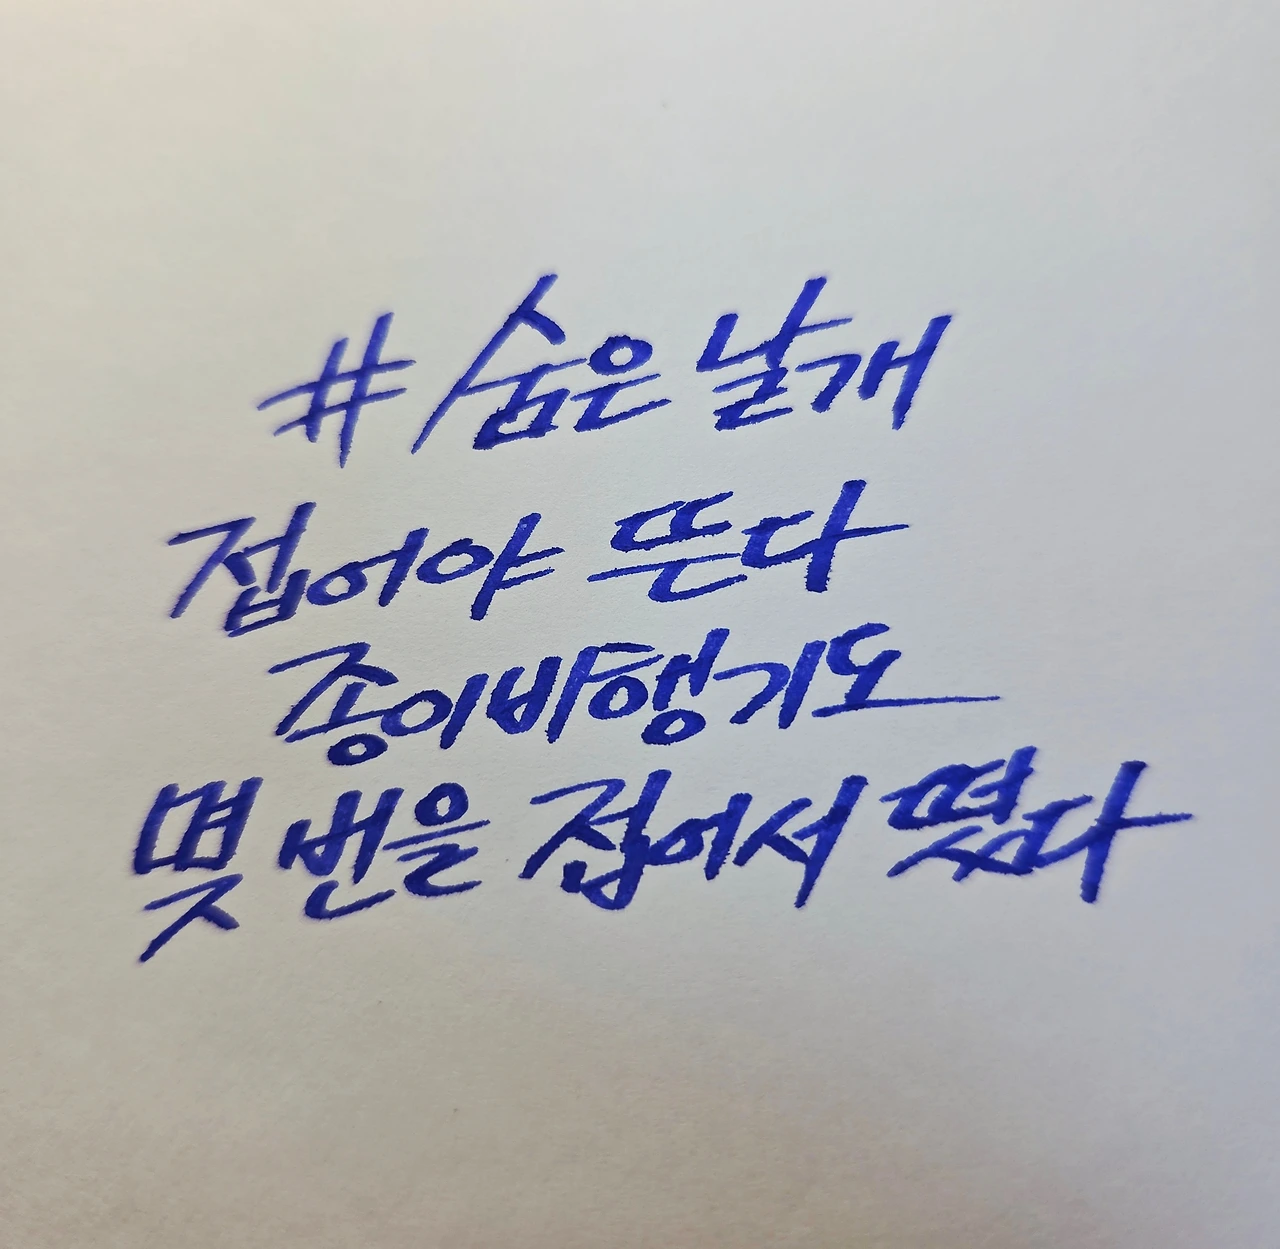 # 숨은 날개
접어야 뜬다
종이비행기도
몇 번을 접어서 떴다